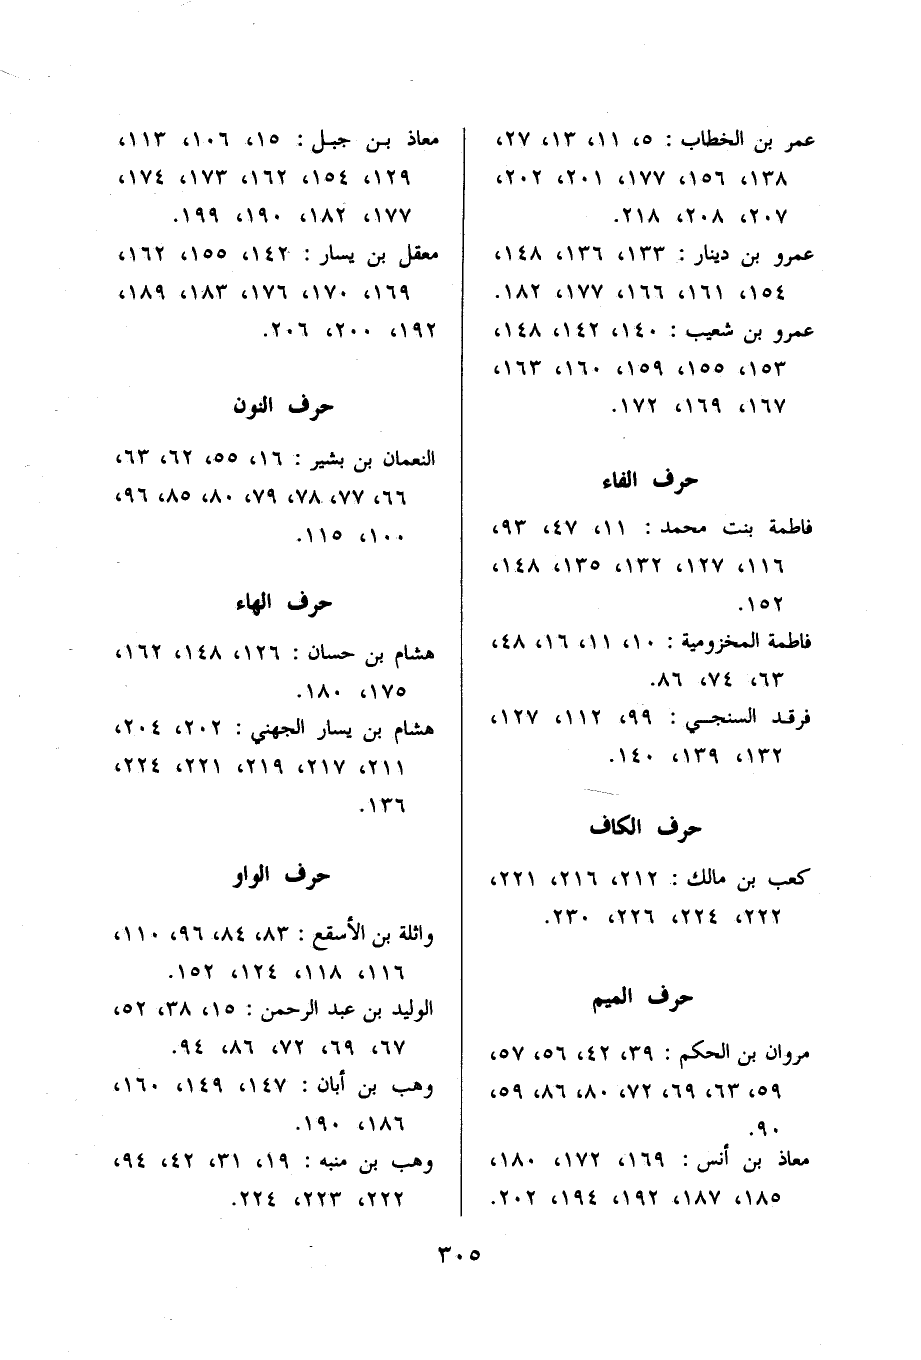 عمر بن الخطاب : ٥، ١١، ١٣، ٢٧،
١٣٨، ١٥٦، ١٧٧، ٢٠١، ٢٠٢،
٢٠٧، ٢٠٨، ٢١٨.
عمرو بن دينار : ١٣٣، ١٣٦، ١٤٨،
١٥٤، ١٦١، ١٦٦، ١٧٧، ١٨٢.
عمرو بن شعيب : ١٤٠، ١٤٢، ١٤٨،
١٥٣، ١٥٥، ١٥٩، ١٦٠، ١٦٣،
١٦٧، ١٦٩، ١٧٢.
حرف الفاء
فاطمة بنت محمد : ١١، ٤٧، ٩٣،
١١٦، ١٢٧، ١٣٢، ١٣٥، ١٤٨،
١٥٢.
فاطمة المخزومية : ١٠، ١١، ١٦، ٤٨،
٦٣، ٧٤، ٨٦.
فرقد السنجي : ٩٩، ١١٢، ١٢٧،
١٣٢، ١٣٩، ١٤٠.
حرف الكاف
كعب بن مالك : ٢١٢، ٢١٦، ٢٢١،
٢٢٢، ٢٢٤، ٢٢٦، ٢٣٠.
حرف الميم
مروان بن الحكم : ٣٩، ٤٢، ٥٦، ٥٧،
٥٩، ٦٣، ٦٩، ٧٢، ٨٠، ٨٦، ٥٩،
٩٠.
معاذ بن أنس : ١٦٩، ١٧٢، ١٨٠،
١٨٥، ١٨٧، ١٩٢، ١٩٤، ٢٠٢.
معاذ بن جبل : ١٥، ١٠٦، ١١٣،
١٢٩، ١٥٤، ١٦٢، ١٧٣، ١٧٤،
١٧٧، ١٨٢، ١٩٠، ١٩٩.
معقل بن يسار : ١٤٢، ١٥٥، ١٦٢،
١٦٩، ١٧٠، ١٧٦، ١٨٣، ١٨٩،
١٩٢، ٢٠٠، ٢٠٦.
حرف النون
النعمان بن بشير : ١٦، ٥٥، ٦٢، ٦٣،
٦٦، ٧٧، ٧٨، ٧٩، ٨٠، ٨٥، ٩٦،
١٠٠، ١١٥.
حرف الهاء
هشام بن حسان : ١٢٦، ١٤٨، ١٦٢،
١٧٥، ١٨٠.
هشام بن يسار الجهني : ٢٠٢، ٢٠٤،
٢١١، ٢١٧، ٢١٩، ٢٢١، ٢٢٤،
١٣٦.
حرف الواو
واثلة بن الأسقع : ٨٣، ٨٤، ٩٦، ١١٠،
١١٦، ١١٨، ١٢٤، ١٥٢.
الوليد بن عبد الرحمن : ١٥، ٣٨، ٥٢،
٦٧، ٦٩، ٧٢، ٨٦، ٩٤.
وهب بن أبان : ١٤٧، ١٤٩، ١٦٠،
١٨٦، ١٩٠.
وهب بن منبه : ١٩، ٣١، ٤٢، ٩٤،
٢٢٢، ٢٢٣، ٢٢٤.
٣٠٥